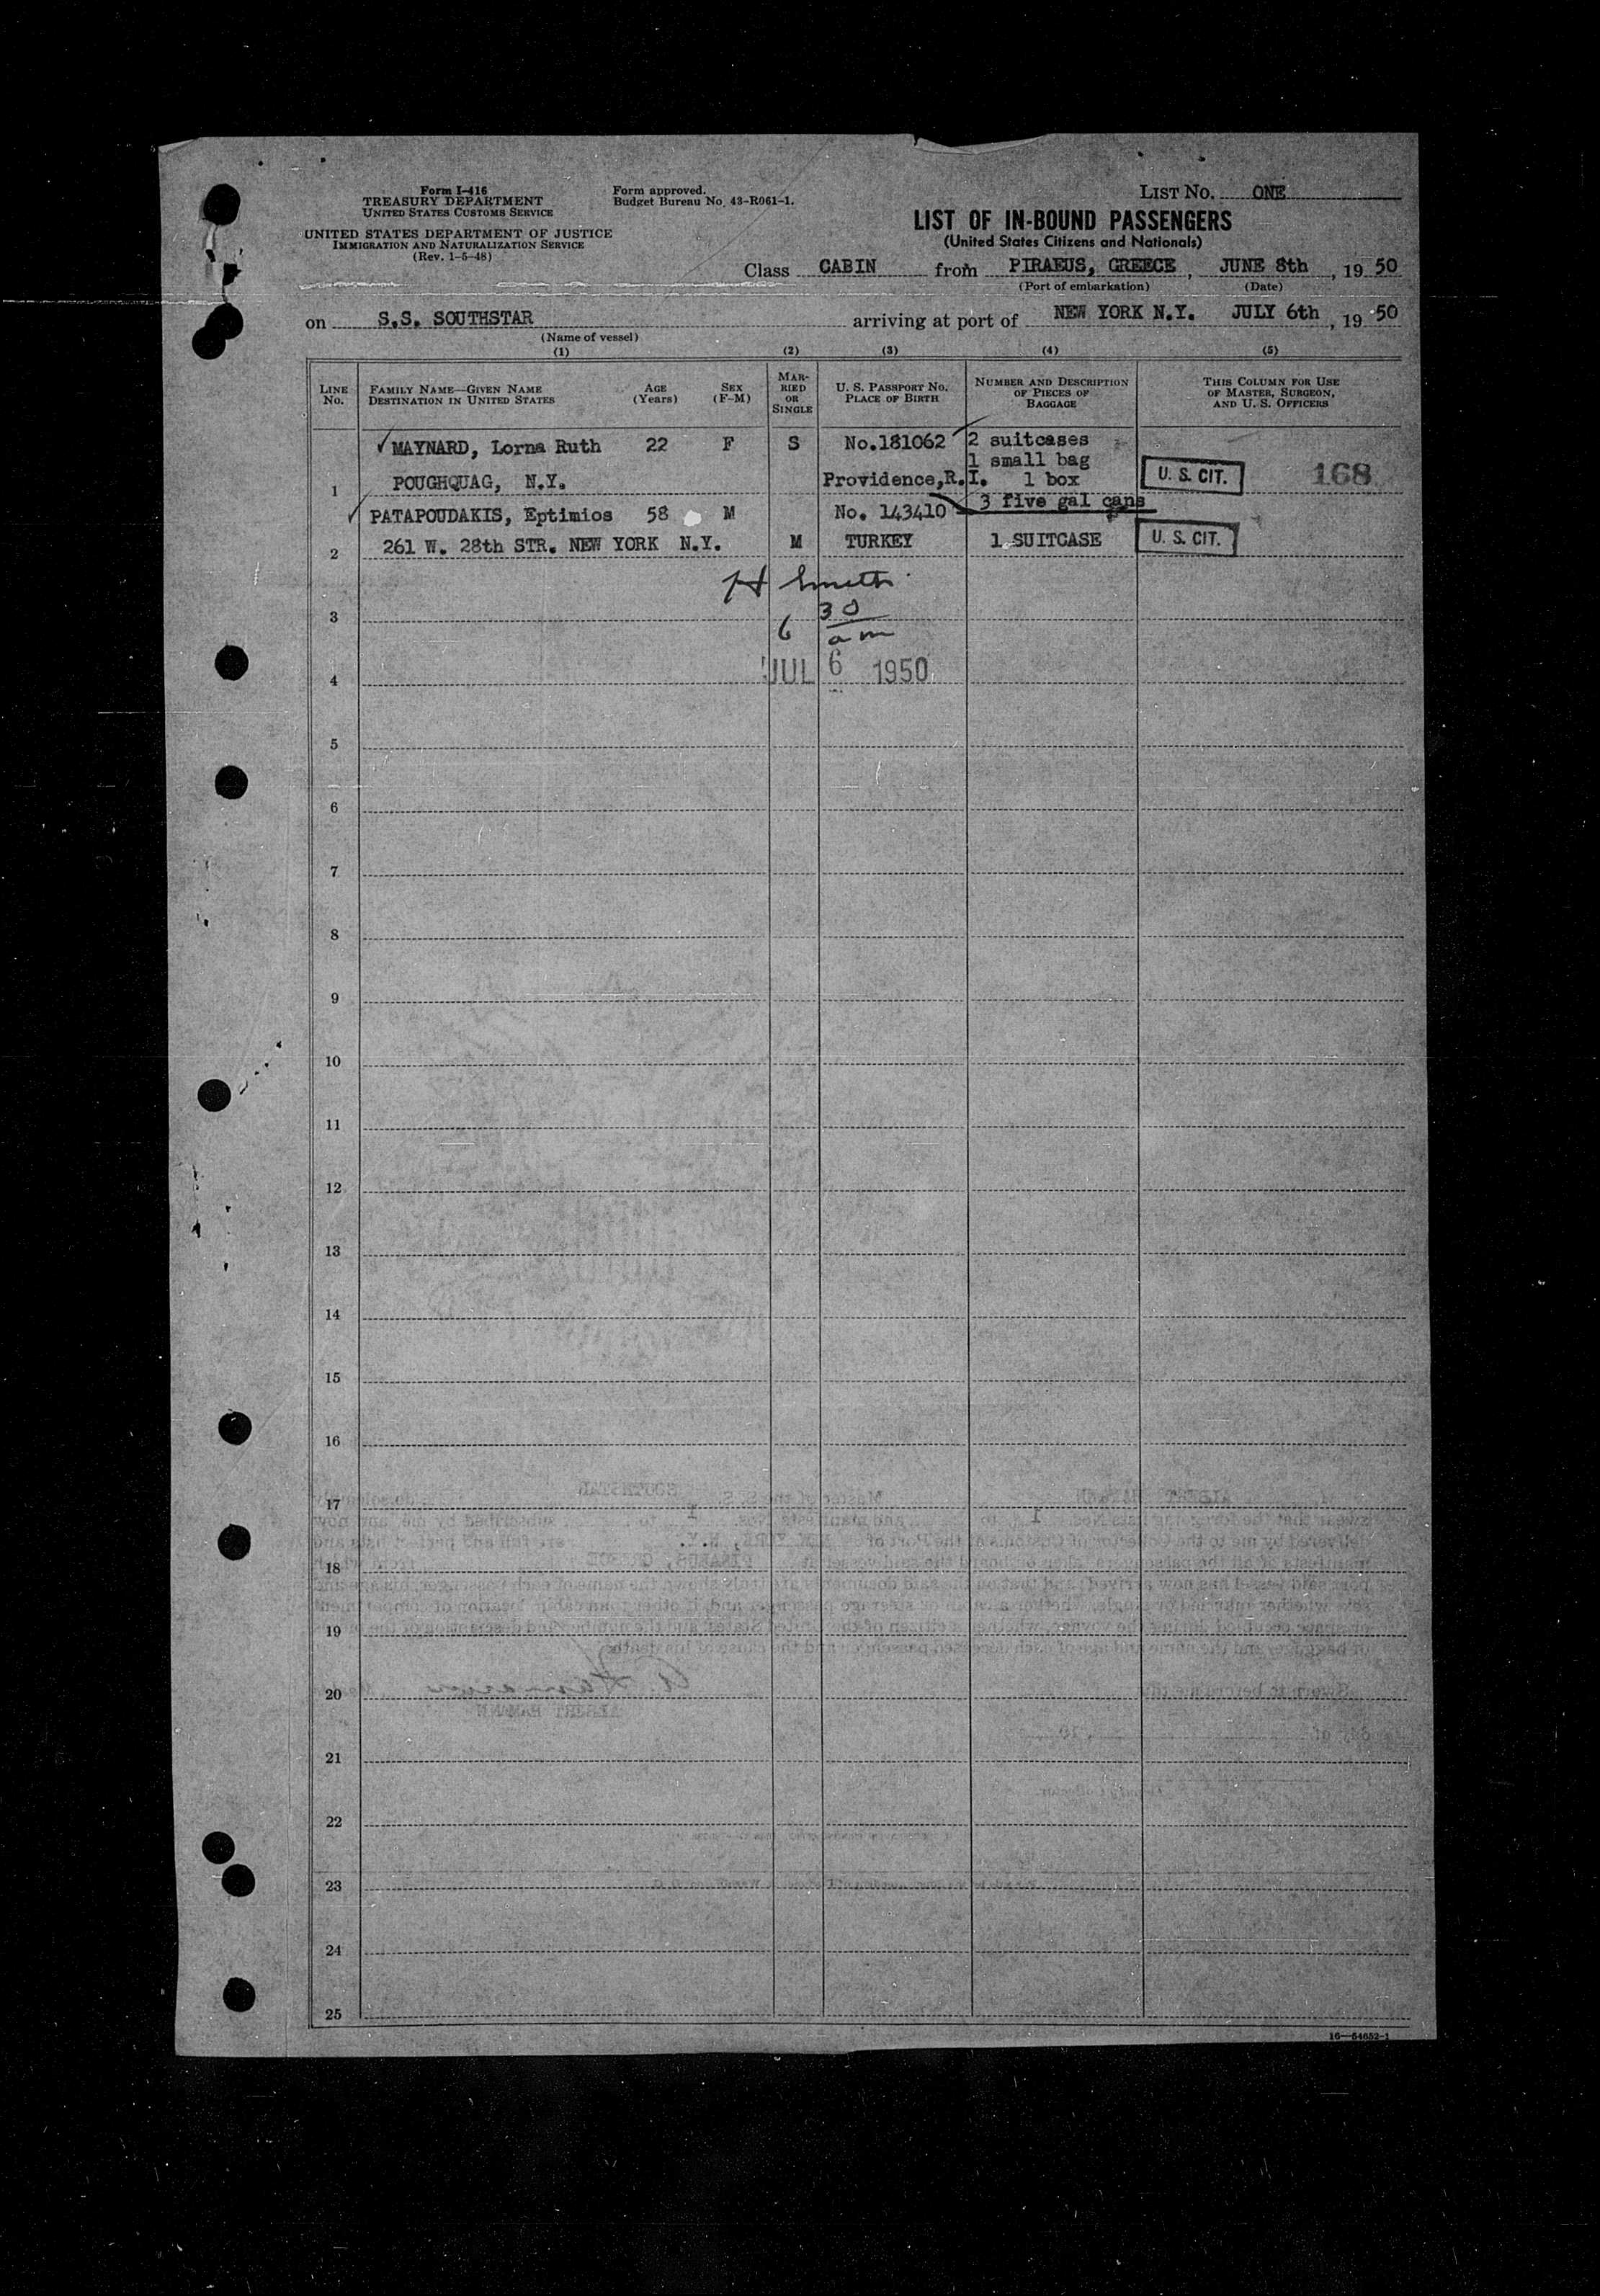 Form I-416
TREASURY DEPARTMENT
UNITED STATES CUSTOMS SERVICE
UNITED STATES DEPARTMENT OF JUSTICE
IMMIGRATION AND NATURALIZATION SERVICE
(Rev. 1-5-48)
Form approved.
Budget Bureau No. 43-R061-1.
LIST NO. ONE
LIST OF IN-BOUND PASSENGERS
(United States Citizens and Nationals)
Class CABIN from PIRAEUS, GREECE, JUNE 8th, 1950
(Port of embarkation) (Date)
on S.S. SOUTHSTAR arriving at port of NEW YORK N.Y. JULY 6th, 1950
(Name of vessel)
(1) (2) (3) (4) (5)
LINE NO.
FAMILY NAME—GIVEN NAME
DESTINATION IN UNITED STATES
AGE
(Years)
SEX
(F-M)
MARRIED OR SINGLE
U. S. PASSPORT NO.
PLACE OF BIRTH
NUMBER AND DESCRIPTION
OF PIECES OF
BAGGAGE
THIS COLUMN FOR USE
OF MASTER, SURGEON,
AND U. S. OFFICERS
MAYNARD, Lorna Ruth 22 F S No.181062 2 suitcases
1 small bag
1 POUGHQUAG, N.Y. Providence,R.I. 1 box U. S. CIT. 168
3 five gal cans
PATAPOUDAKIS, Eptimios 58 M No. 143410
2 261 W. 28th STR. NEW YORK N.Y. M TURKEY 1 SUITCASE U. S. CIT.
H Smith
3 6 30
am
4 JUL 6 1950
5
6
7
8
9
10
11
12
13
14
15
16
17
18
19
20
21
22
23
24
25
16—54652-1